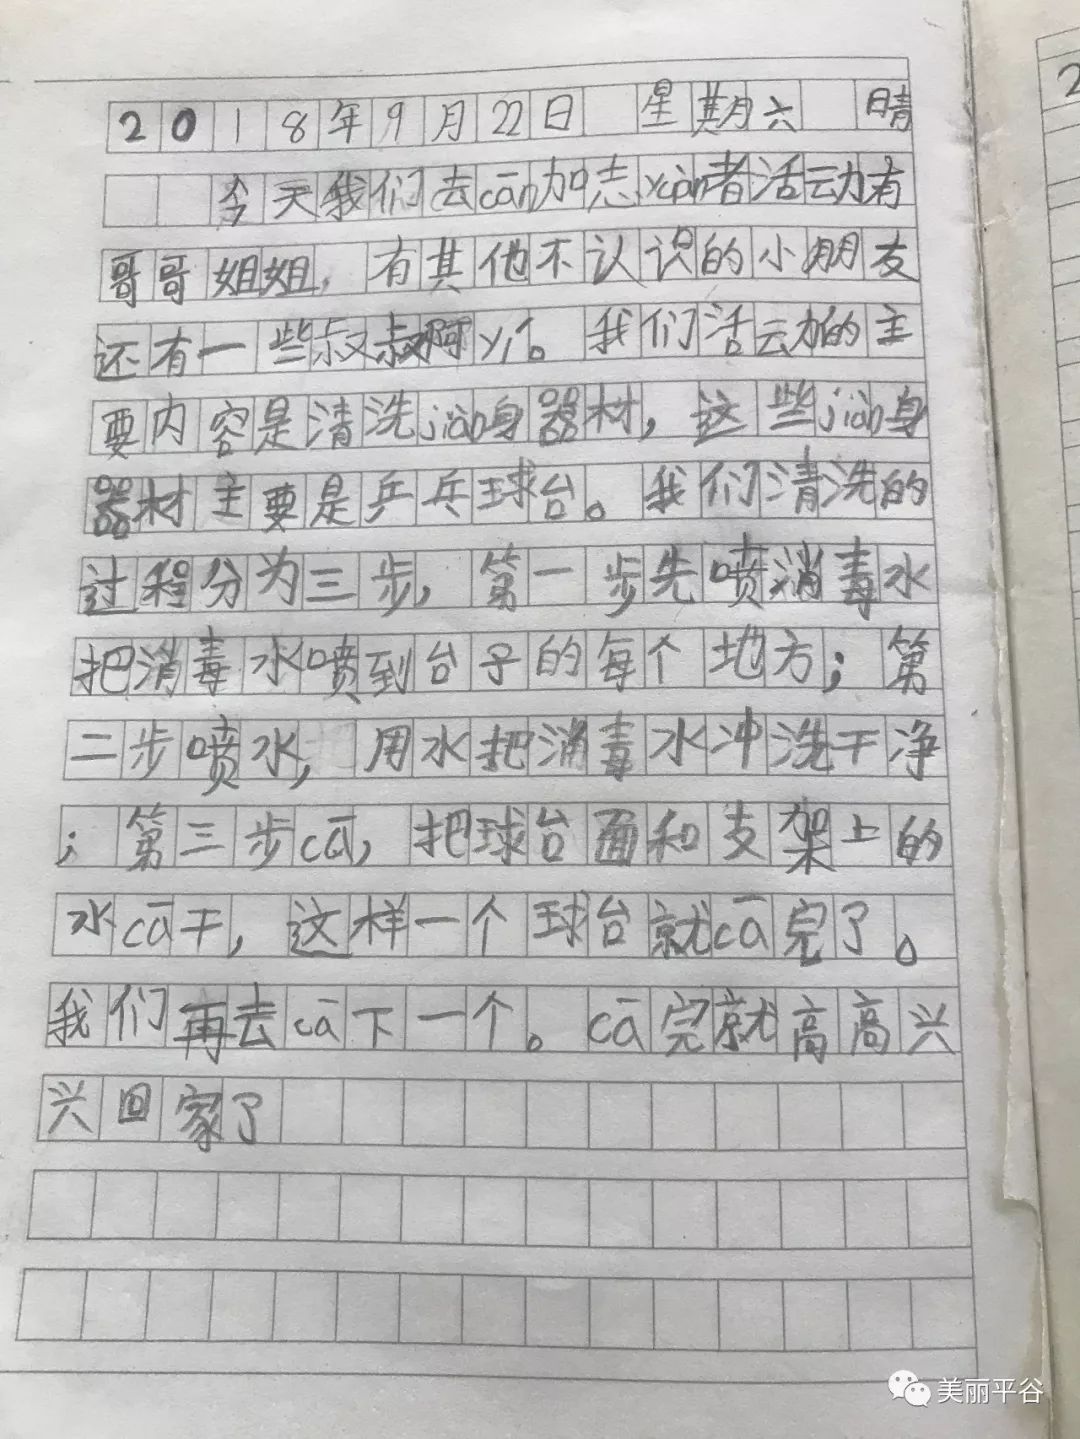 2018年9月22日 星期六 晴
今天我们去cān加志yuàn者活动有
哥哥姐姐，有其他不认识的小朋友
还有一些叔叔啊yí。我们活动的主
要内容是清洗jiàn身器材，这些jiàn身
器材主要是乒乓球台。我们清洗的
过程分为三步，第一步先喷消毒水
把消毒水喷到台子的每个地方；第
二步喷水，用水把消毒水冲洗干净
；第三步cā，把球台面和支架上的
水cā干，这样一个球台就cā完了。
我们再去cā下一个。cā完就高高兴
兴回家了
2
美丽平谷